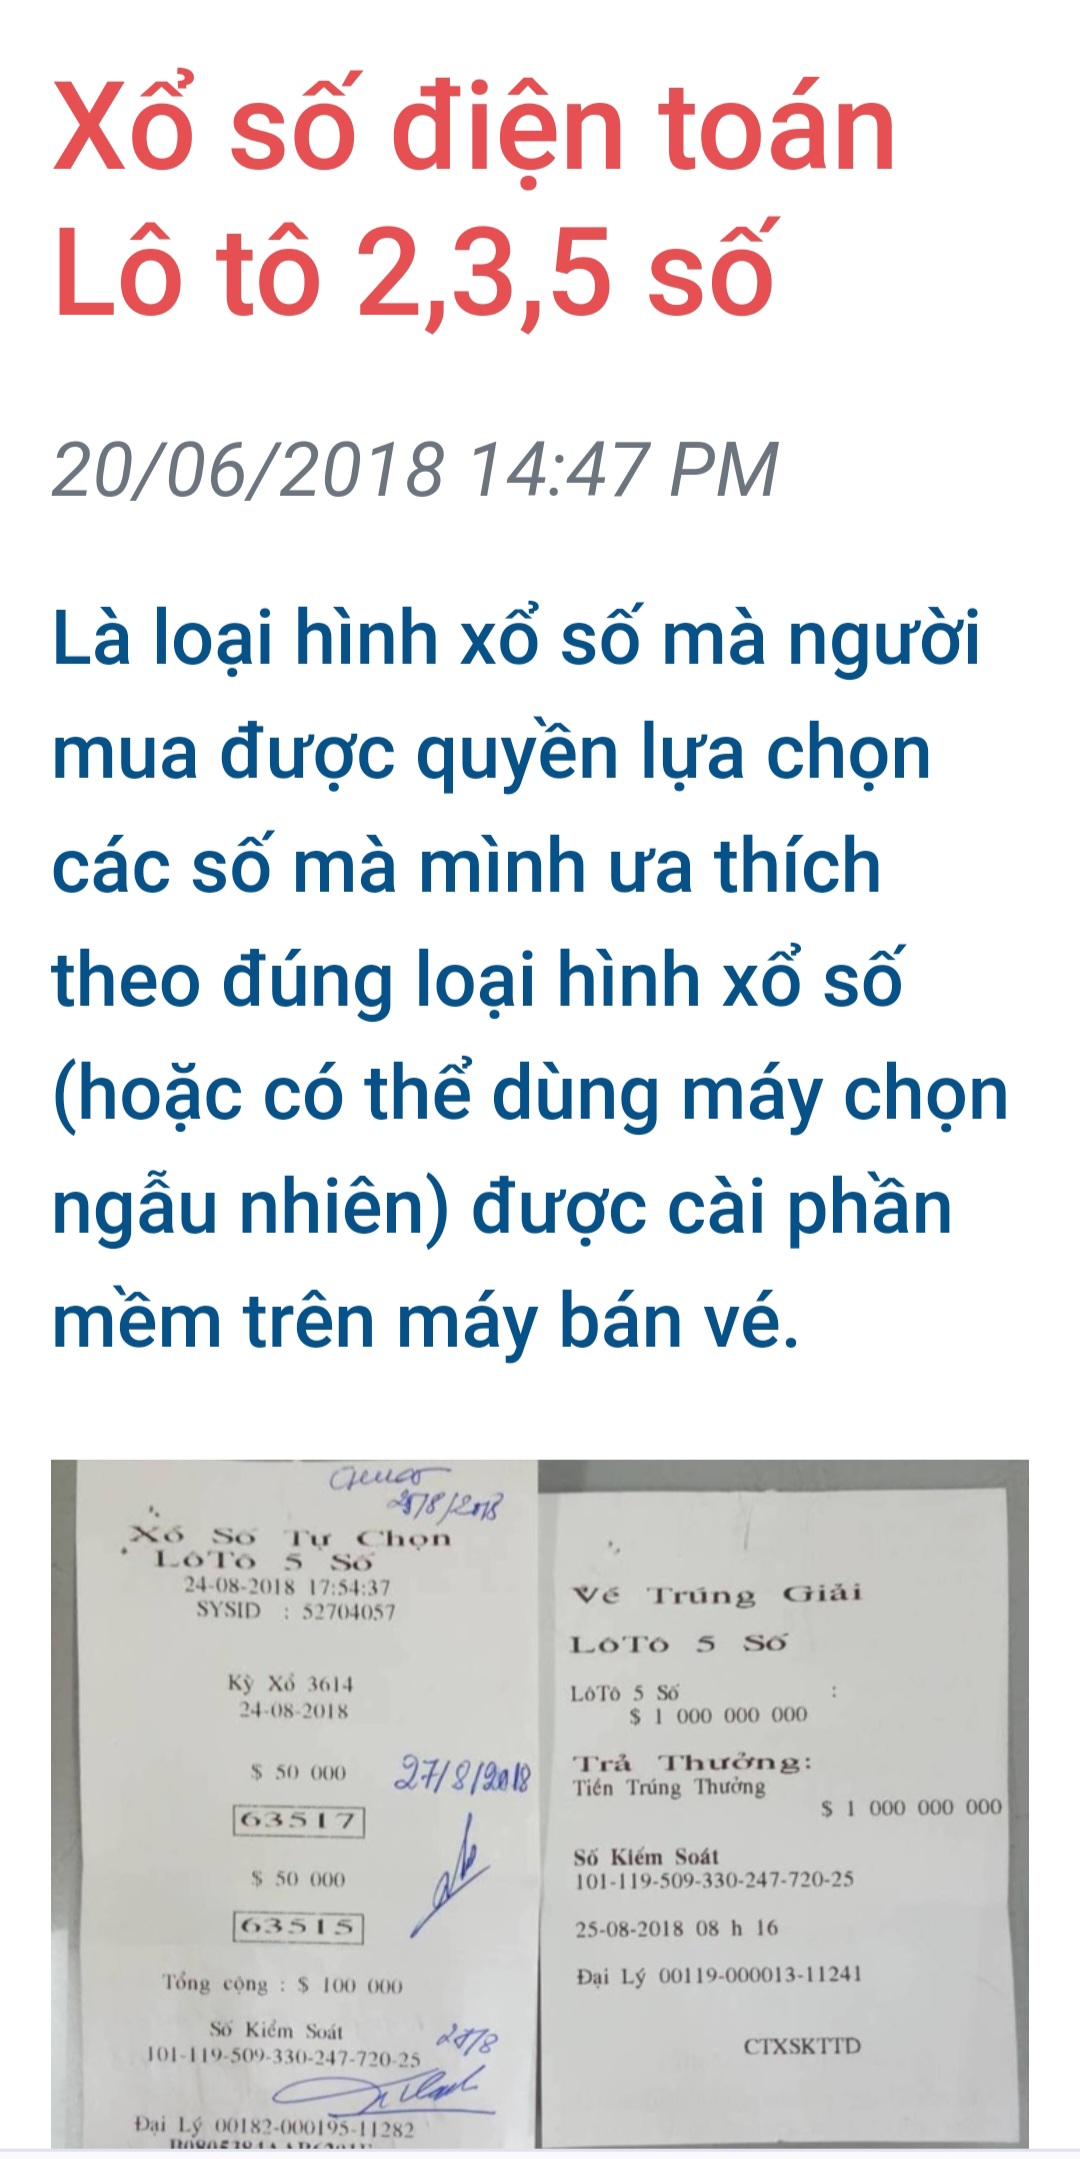 Xổ số điện toán
Lô tô 2,3,5 số
20/06/2018 14:47 PM
Là loại hình xổ số mà người
mua được quyền lựa chọn
các số mà mình ưa thích
theo đúng loại hình xổ số
(hoặc có thể dùng máy chọn
ngẫu nhiên) được cài phần
mềm trên máy bán vé.
25/8/2018
Xổ Số Tự Chọn
LôTô 5 Số
24-08-2018 17:54:37
SYSID : 52704057
Kỳ Xổ 3614
24-08-2018
$ 50 000
27/8/2018
63517
$ 50 000
63515
Tổng cộng : $ 100 000
Số Kiểm Soát
101-119-509-330-247-720-25
Đại Lý 00182-000195-11282
Vé Trúng Giải
LôTô 5 Số
LôTô 5 Số :
$ 1 000 000 000
Trả Thưởng:
Tiền Trúng Thưởng
$ 1 000 000 000
Số Kiểm Soát
101-119-509-330-247-720-25
25-08-2018 08 h 16
Đại Lý 00119-000013-11241
CTXSKTTD